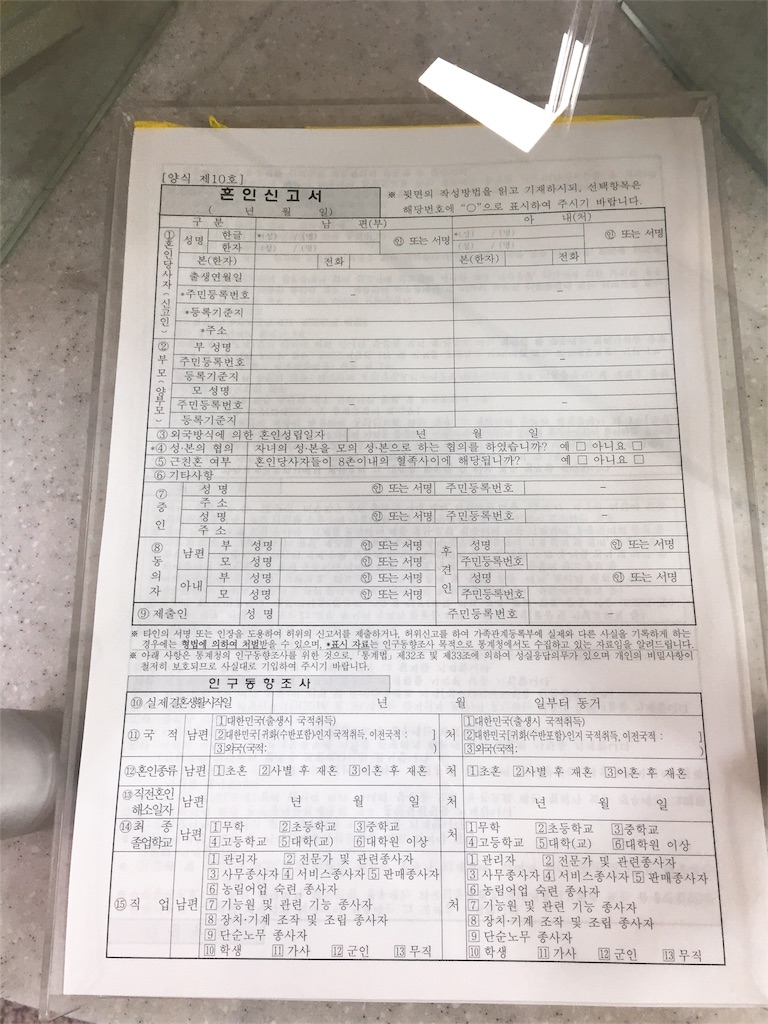 [양식 제10호]
혼 인 신 고 서
( 년 월 일)
※ 뒷면의 작성방법을 읽고 기재하시되, 선택항목은
해당번호에 "○"으로 표시하여 주시기 바랍니다.
구 분 남 편(부) 아 내(처)
①혼인당사자(신고인)
성명 한글 *(성) / (명) ㊞ 또는 서명 *(성) / (명) ㊞ 또는 서명
한자 (성) / (명) (성) / (명)
본(한자) 전화 본(한자) 전화
출생연월일
*주민등록번호 - -
*등록기준지
*주소
②부모(양부모)
부 성명
주민등록번호 - -
등록기준지
모 성명
주민등록번호 - -
등록기준지
③외국방식에 의한 혼인성립일자 년 월 일
*④성·본의 협의 자녀의 성·본을 모의 성·본으로 하는 협의를 하였습니까? 예 □ 아니요 □
⑤근친혼 여부 혼인당사자들이 8촌이내의 혈족사이에 해당됩니까? 예 □ 아니요 □
⑥기타사항
⑦증인
성 명 ㊞ 또는 서명 주민등록번호 -
주 소
성 명 ㊞ 또는 서명 주민등록번호 -
주 소
⑧동의자
남편 부 성명 ㊞ 또는 서명 후견인 성명 ㊞ 또는 서명
모 성명 ㊞ 또는 서명 주민등록번호
아내 부 성명 ㊞ 또는 서명 성명 ㊞ 또는 서명
모 성명 ㊞ 또는 서명 주민등록번호
⑨제출인 성 명 주민등록번호 -
※ 타인의 서명 또는 인장을 도용하여 허위의 신고서를 제출하거나, 허위신고를 하여 가족관계등록부에 실제와 다른 사실을 기록하게 하는
경우에는 형법에 의하여 처벌받을 수 있으며, *표시 자료는 인구동향조사 목적으로 통계청에서도 수집하고 있는 자료임을 알려드립니다.
※ 아래 사항은 통계청의 인구동향조사를 위한 것으로, 「통계법」 제32조 및 제33조에 의하여 성실응답의무가 있으며 개인의 비밀사항이
철저히 보호되므로 사실대로 기입하여 주시기 바랍니다.
인구동향조사
⑩실제결혼생활시작일 년 월 일부터 동거
⑪국 적 남편 처
1대한민국(출생시 국적취득) 1대한민국(출생시 국적취득)
2대한민국[귀화(수반포함)·인지 국적취득, 이전국적 : ] 2대한민국[귀화(수반포함)·인지 국적취득, 이전국적 : ]
3외국(국적: ) 3외국(국적: )
⑫혼인종류 남편 1초혼 2사별 후 재혼 3이혼 후 재혼 처 1초혼 2사별 후 재혼 3이혼 후 재혼
⑬직전혼인해소일자 남편 년 월 일 처 년 월 일
⑭최종졸업학교 남편 처
1무학 2초등학교 3중학교 1무학 2초등학교 3중학교
4고등학교 5대학(교) 6대학원 이상 4고등학교 5대학(교) 6대학원 이상
⑮직 업 남편 처
1관리자 2전문가 및 관련종사자 1관리자 2전문가 및 관련종사자
3사무종사자 4서비스종사자 5판매종사자 3사무종사자 4서비스종사자 5판매종사자
6농림어업 숙련 종사자 6농림어업 숙련 종사자
7기능원 및 관련 기능 종사자 7기능원 및 관련 기능 종사자
8장치·기계 조작 및 조립 종사자 8장치·기계 조작 및 조립 종사자
9단순노무 종사자 9단순노무 종사자
10학생 11가사 12군인 13무직 10학생 11가사 12군인 13무직